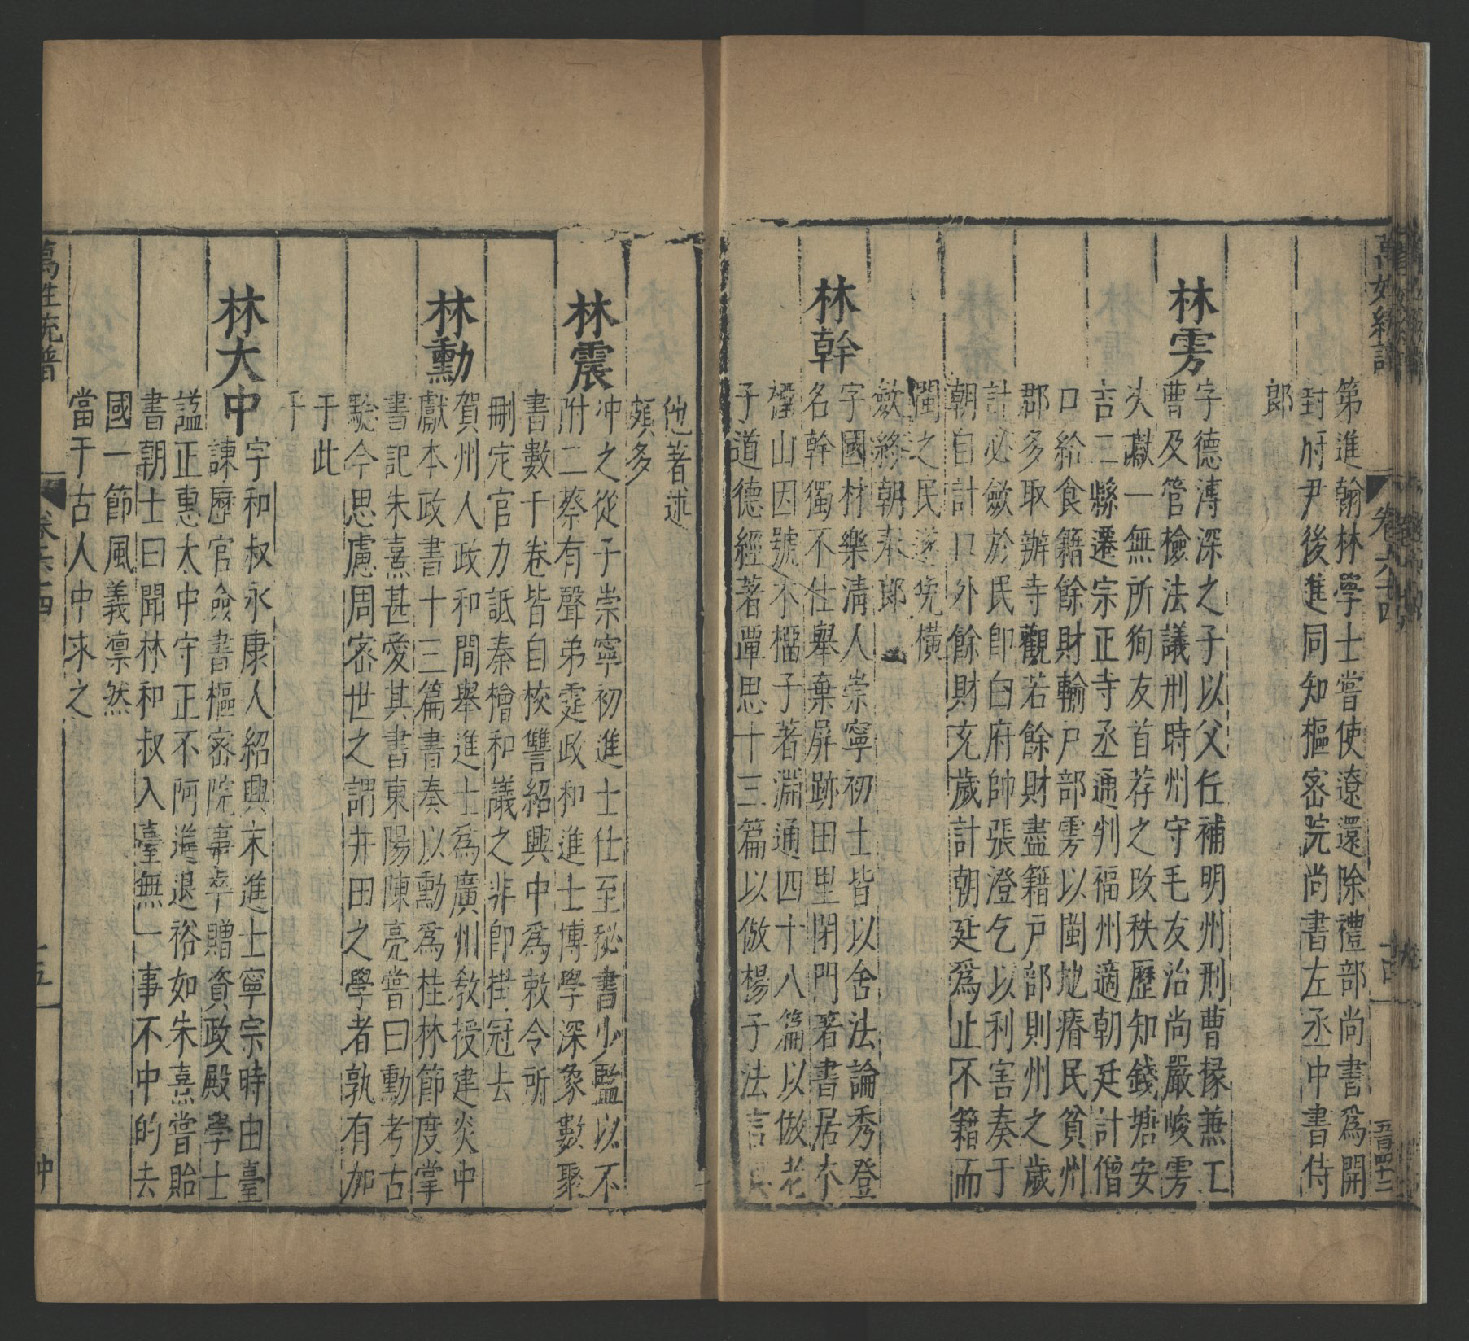 萬姓統譜 卷六十四 十四 五百四十二
第進翰林學士嘗使遼還除禮部尚書爲開
封府尹後進同知樞密院尚書左丞中書侍
郎
林雱
字德漙深之子以父任補明州刑曹掾兼工
曹及管檢法議刑時州守毛友治尚嚴峻雱
夾讞一無所徇友首荐之改秩歷知錢塘安
吉二縣遷宗正寺丞通判福州適朝廷計僧
口給食籍餘財輸戶部雱以閩地瘠民貧州
郡多取辦寺觀若餘財盡籍戶部則州之歲
計必斂於民卽白府帥張澄乞以利害奏于
朝自計口外餘財充歲計朝廷爲止不籍而
閩之民遂免橫
斂終朝奉郎
林幹
字國材樂清人崇寧初士皆以舍法論秀登
名幹獨不仕舉棄屏跡田里閉門著書居木
橿山因號木橿子著淵通四十八篇以倣老
子道德經著覃思十三篇以倣楊子法言
他著述
頗多
林震
冲之從子崇寧初進士仕至秘書少監以不
附二蔡有聲弟霆政和進士博學深象數聚
書數千卷皆自校讐紹興中爲敕令所
刪定官力詆秦檜和議之非卽掛冠去
林勳
賀州人政和間舉進士爲廣州敎授建炎中
獻本政書十三篇書奏以勳爲桂林節度掌
書記朱熹甚愛其書東陽陳亮嘗曰勳考古
驗今思慮周密世之謂井田之學者孰有加
于此
乎
林大中
字和叔永康人紹興末進士寧宗時由臺
諫歷官僉書樞密院事卒贈資政殿學士
謚正惠大中守正不阿進退裕如朱熹嘗貽
書朝士曰聞林和叔入臺無一事不中的去
國一節風義凛然
當于古人中求之
萬姓統譜 卷六十四 十五 冲